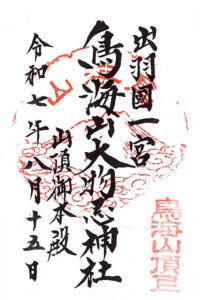 出羽國一宮
鳥海山大物忌神社
山頂御本殿
令和七年八月十五日
鳥海山頂上